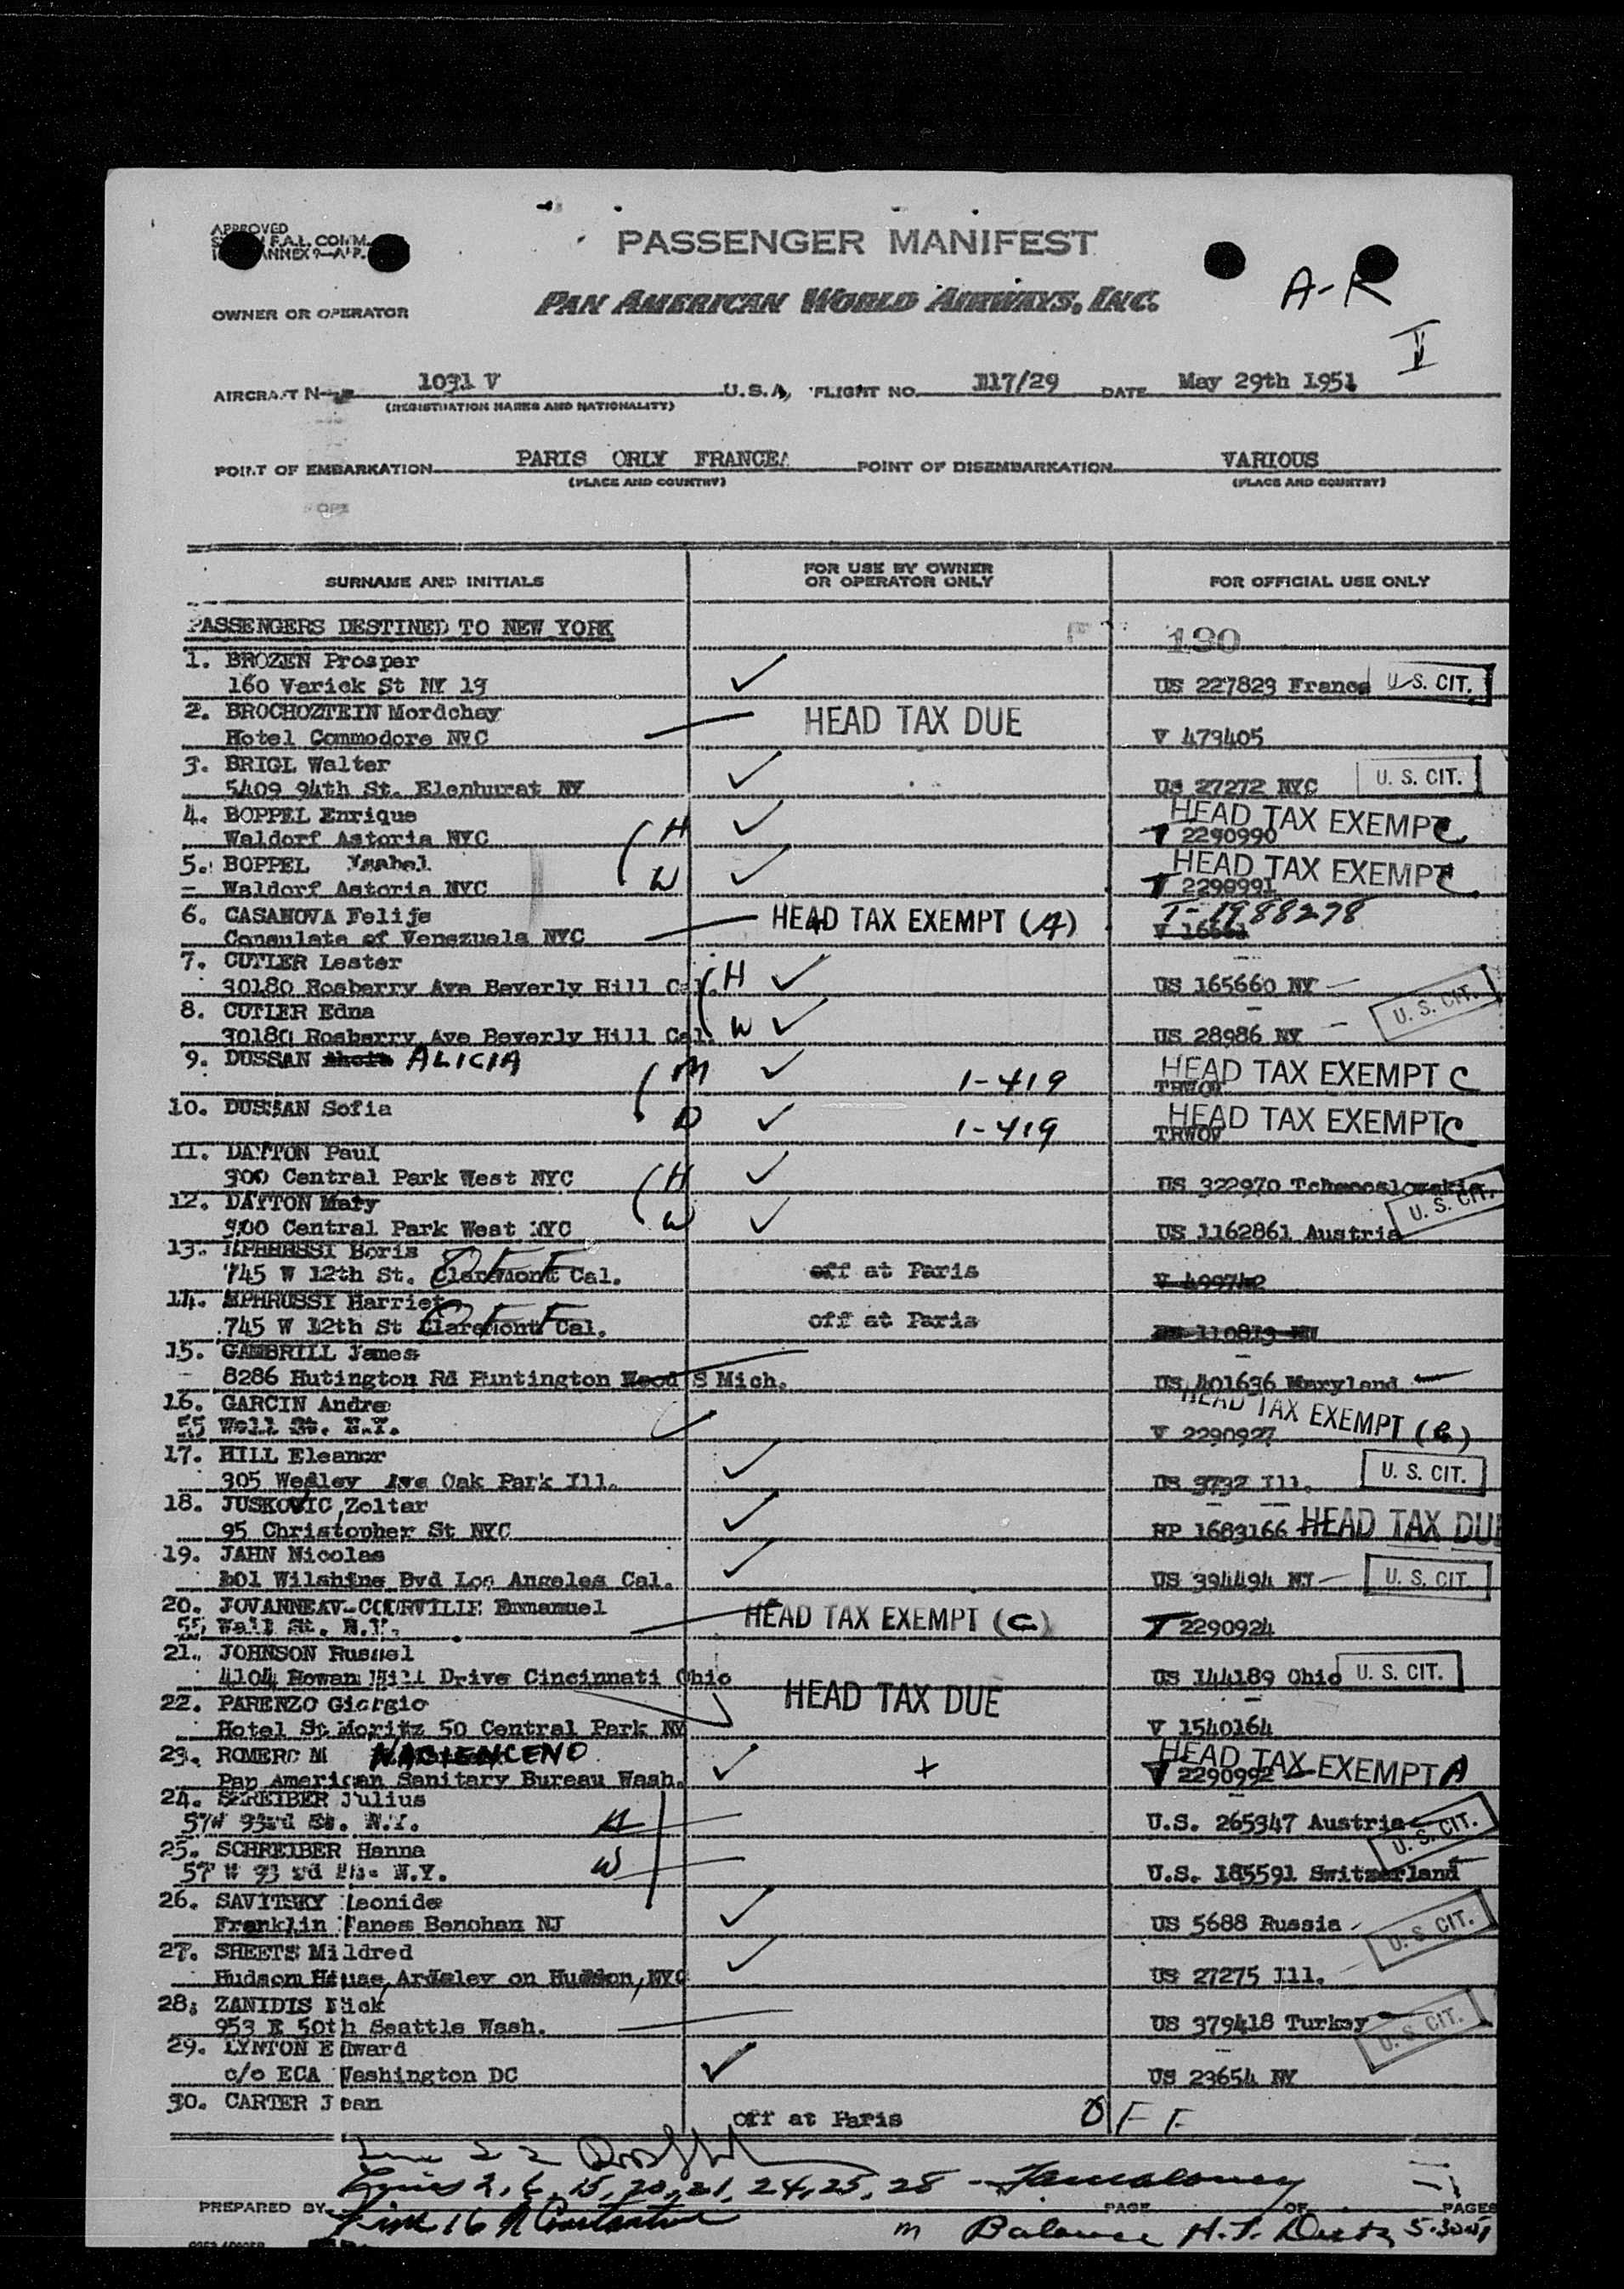 APPROVED
F.A.L. COMM.
ANNEX 9-
PASSENGER MANIFEST
A-R
OWNER OR OPERATOR
PAN AMERICAN WORLD AIRWAYS, INC.
AIRCRAFT 1031 V U.S.A. FLIGHT NO. 117/29 DATE May 29th 1951
(REGISTRATION MARKS AND NATIONALITY)
POINT OF EMBARKATION PARIS ORLY FRANCE POINT OF DISEMBARKATION VARIOUS
(PLACE AND COUNTRY) (PLACE AND COUNTRY)
SURNAME AND INITIALS FOR USE BY OWNER OR OPERATOR ONLY FOR OFFICIAL USE ONLY
PASSENGERS DESTINED TO NEW YORK 190
1. BROZEN Prosper
160 Varick St NY 13 US 227829 France U.S. CIT.
2. BROCHOZTEIN Mordchay HEAD TAX DUE
Hotel Commodore NYC V 479405
3. BRIGL Walter
5409 94th St. Elenhurst NY US 27272 NYC U. S. CIT.
4. BOPPEL Enrique HEAD TAX EXEMPT C
Waldorf Astoria NYC H T 2290990
5. BOPPEL Ysabel HEAD TAX EXEMPT C
Waldorf Astoria NYC W T 2290991
6. CASANOVA Felije HEAD TAX EXEMPT (A) T-1988278
Consulate of Venezuela NYC V 16661
7. CUTLER Lester H
30180 Rosberry Ave Beverly Hill Cal. US 165660 NY
8. CUTLER Edna W U. S. CIT.
30180 Rosberry Ave Beverly Hill Cal. US 28986 NY
9. DUSSAN ALICIA M 1-419 HEAD TAX EXEMPT C
TRWOV
10. DUSSAN Sofia D 1-419 HEAD TAX EXEMPT C
TRWOV
11. DAYTON Paul
300 Central Park West NYC H US 322970 Tchecoslowakia
12. DAYTON Mary U. S. CIT.
300 Central Park West NYC W US 1162861 Austria
13. EPHRUSSI Boris OFF
745 W 12th St. Claremont Cal. off at Paris V 499742
14. EPHRUSSY Harriet OFF
745 W 12th St Claremont Cal. off at Paris
15. GAMBRILL James
8286 Hutington Rd Huntington Wood S Mich. US 401636 Maryland
16. GARCIN Andre HEAD TAX EXEMPT
55 Wall St. N.Y. V 2290927
17. HILL Eleanor U. S. CIT.
305 Wesley Ave Oak Park Ill. US 3732 Ill.
18. JUSKOVIC Zoltar
95 Christopher St NYC RP 1683166 HEAD TAX DUE
19. JAHN Nicolas
Wilshine Bvd Los Angeles Cal. US 394494 NJ U. S. CIT.
20. JOVANNEAV-COURVILLE Emmanuel HEAD TAX EXEMPT (C)
55 Wall St. N.Y. T 2290924
21. JOHNSON Russel
4104 Rowan Hill Drive Cincinnati Ohio US 144189 Ohio U. S. CIT.
22. PARENZO Giorgio HEAD TAX DUE
Hotel St Moritz 50 Central Park NY V 1540164
23. ROMERO M + HEAD TAX EXEMPT A
Pan American Sanitary Bureau Wash. 2290992
24. SCHREIBER Julius
57W 93rd St. N.Y. H U.S. 265947 Austria U. S. CIT.
25. SCHREIBER Hanna
57 W 93 rd N.Y. W U.S. 185591 Switzerland
26. SAVITSKY Leonide
Franklin Lanes Benohan NJ US 5688 Russia U. S. CIT.
27. SHEETS Mildred
Hudsom House, Ardsley on Hudson, NYC US 27275 Ill.
28. ZANIDIS Nick
953 E 50th Seattle Wash. US 379418 Turkey U. S. CIT.
29. LYNTON Edward
c/o ECA Washington DC US 23654 NY
30. CARTER Jean
off at Paris OFF
Line 22
Lines 2, 6, 15, 20, 21, 24, 25, 28 -
PREPARED BY PAGE OF PAGES
Line 16
Balance H. T. 5.30.51